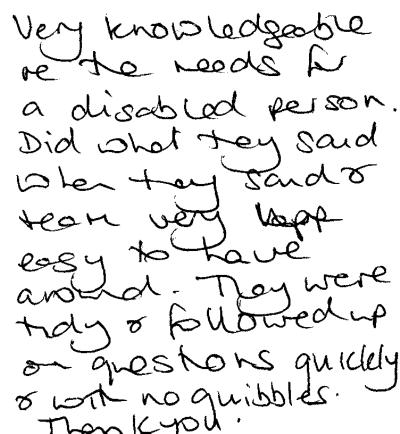 Very knowledgeable
re the needs for
a disabled person.
Did what they said
when they said &
team very
easy to have
around. They were
tidy & followed up
on questions quickly
& with no quibbles.
Thank you.